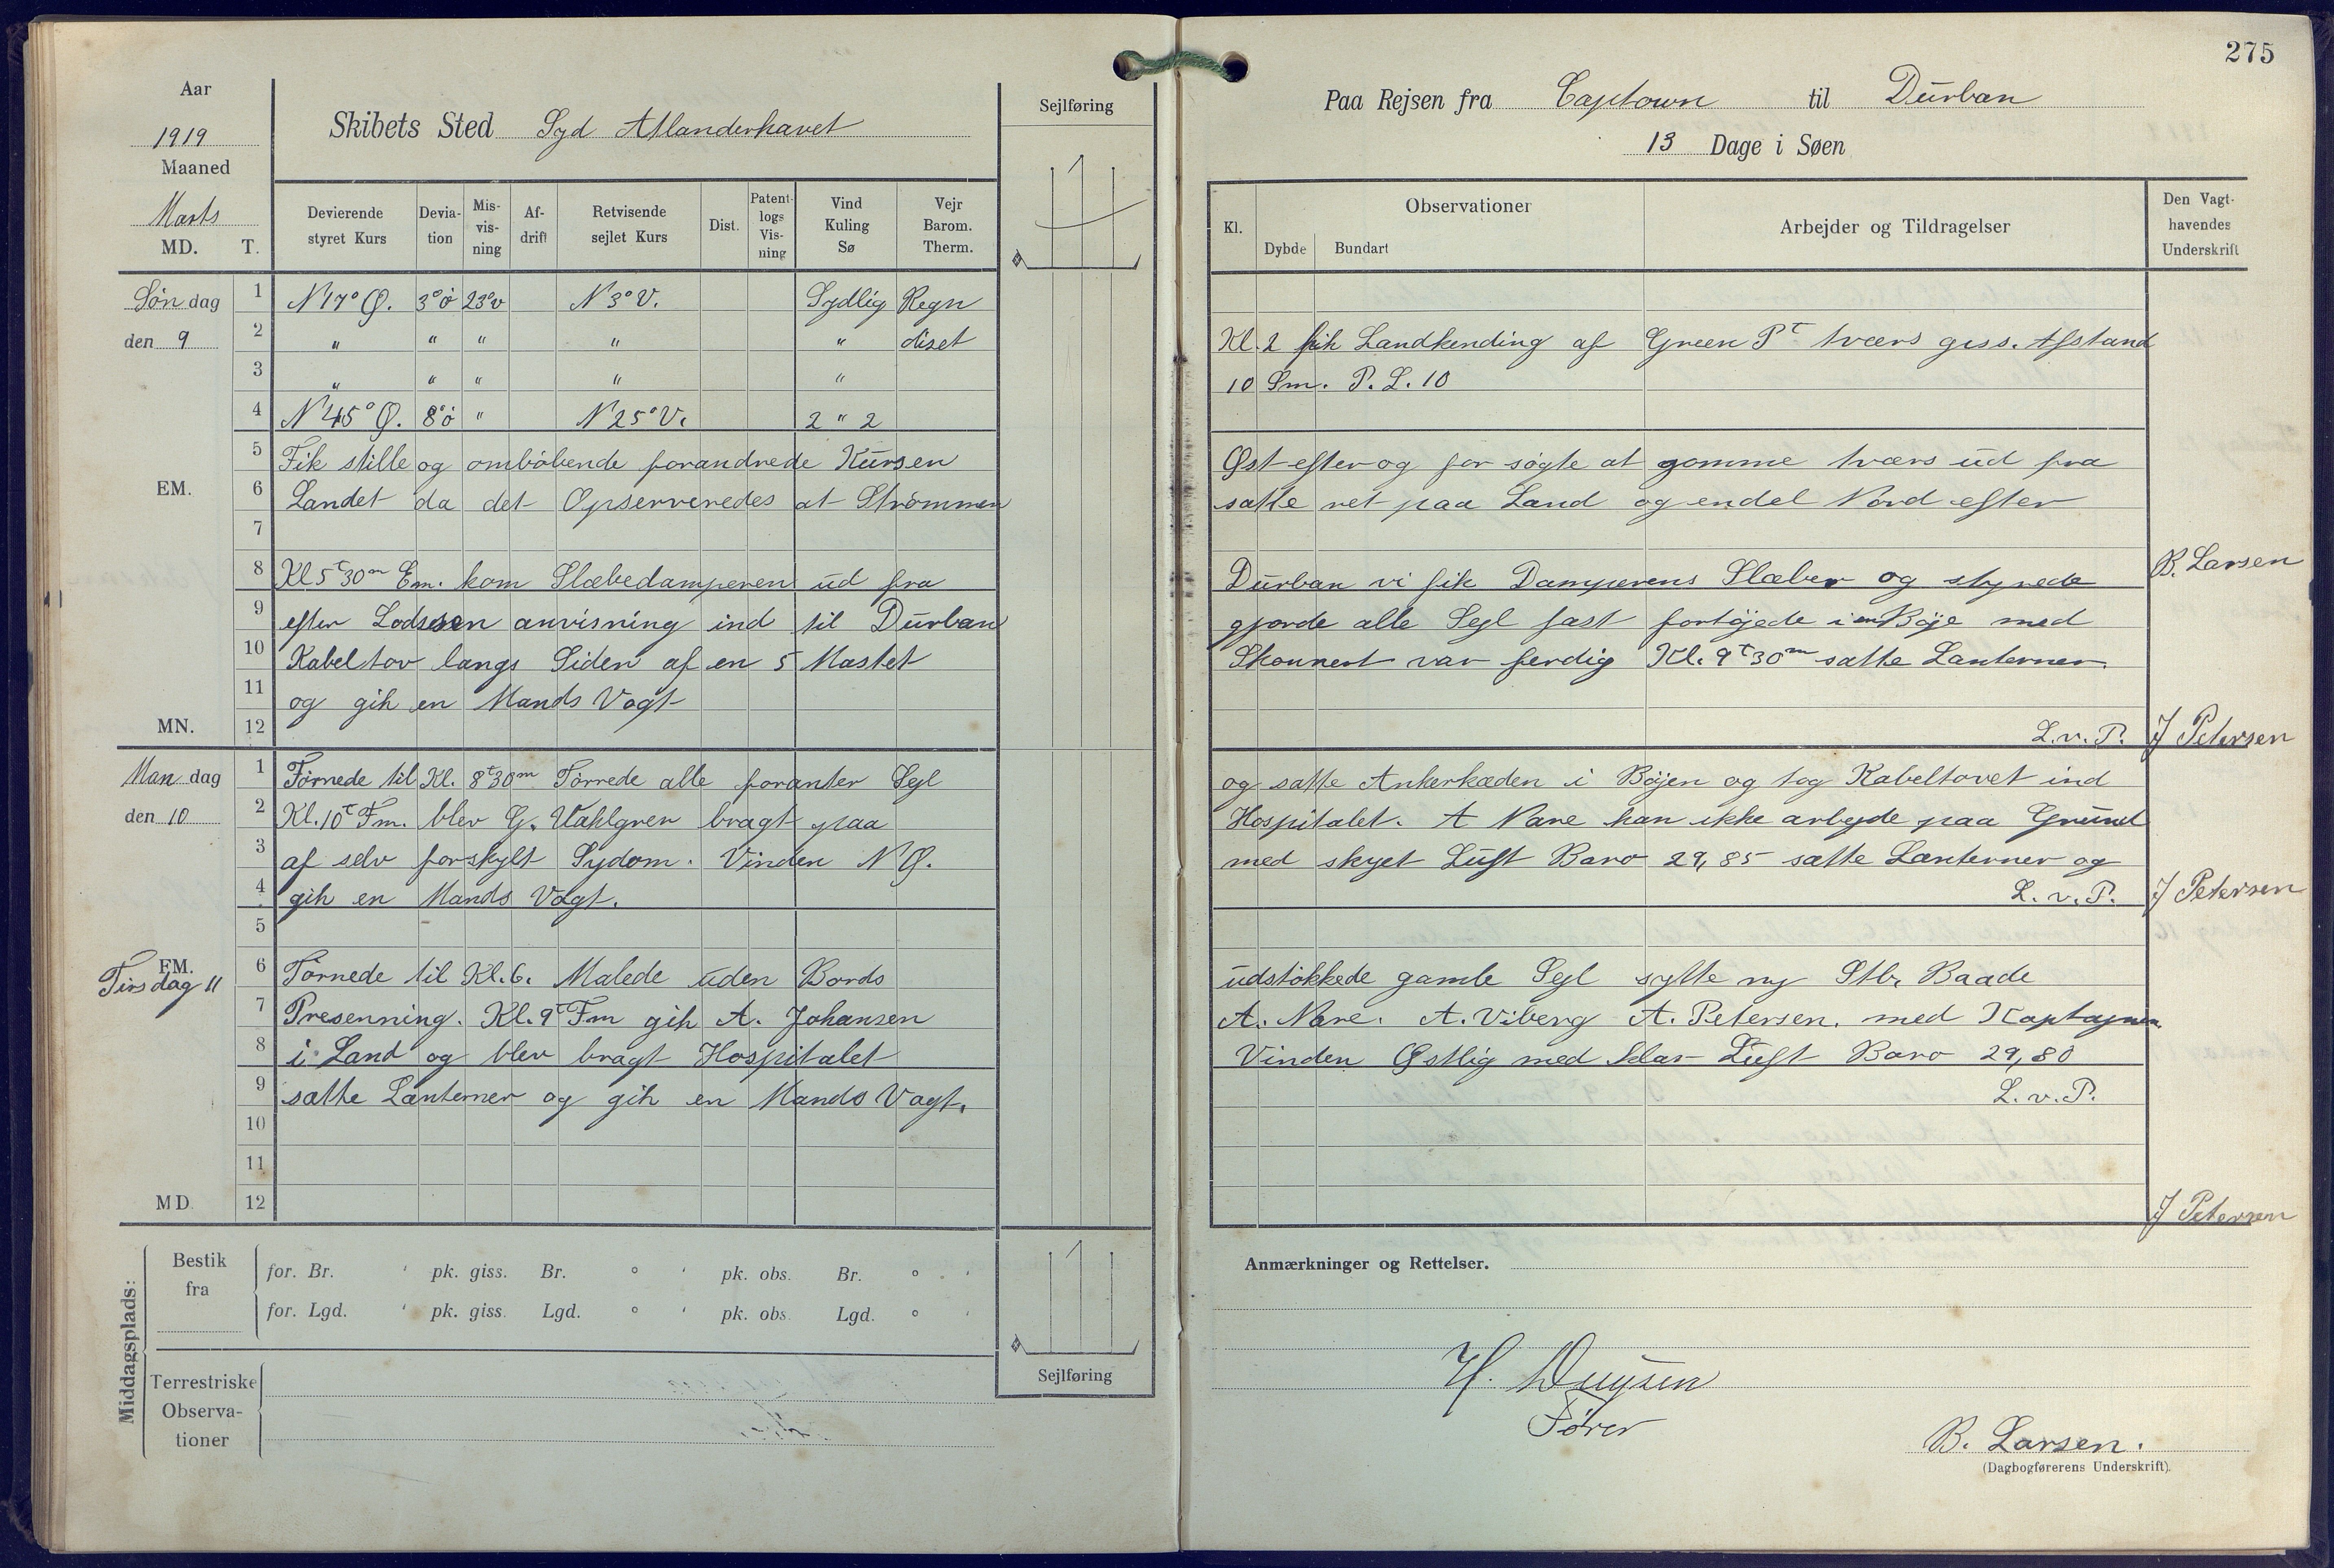 275
Aar
1919
Maaned
Marts
MD. T.
Skibets Sted Syd Atlanderhavet
Sejlføring
Paa Rejsen fra Captown til Durban
13 Dage i Søen
Devierende styret Kurs
Devia-tion
Mis-vis-ning
Af-drift
Retvisende sejlet Kurs
Dist.
Patent-logs Vis-ning
Vind Kuling Sø
Vejr Barom. Therm.
Kl.
Observationer
Dybde Bundart
Arbejder og Tildragelser
Den Vagt-havendes Underskrift
Søndag 1 N 17° Ø. 3° ö 23° v N 3° V. Sydlig Regn
den 9 2 " " " " " diset Kl. 2 fik Landkending af Green Pt tværs giss. Afstand
3 " " " " " 10 Sm. P. L. 10
4 N 45° Ø. 8° ö " N 25° V. 2 " 2
5 Fik stille og omlöbende forandrede Kursen Øst efter og for søgte at gomme tværs ud fra
EM. 6 Landet da det Opserveredes at Strömmen satte ret paa Land og endel Nord efter
7
8 Kl 5t 30m Em. kom Slæbedamperen ud fra Durban vi fik Damperens Slæber og styrede B. Larsen
9 efter Lodsesen anvisning ind til Durban gjorde alle Sejl fast fortöjede i en Böje med
10 Kabeltov langs Siden af en 5 Mastet Skonnert var ferdig Kl. 9t 30m satte Lanterner
11 og gik en Mands Vagt
MN. 12 L. v. P. J Petersen
Mandag 1 Törnede til Kl. 8t 30m Törrede alle foranter Sejl og satte Ankerkæden i Böjen og tog Kabeltovet ind
den 10 2 Kl. 10t Fm. blev G. Vahlgren bragt paa Hospitalet. A Nare kan ikke arbejde paa Grund
3 af selv forskylt Sydom. Vinden N Ø. med skyet Luft Baro 29,85 satte Lanterner og
4 gik en Mands Vagt. L. v. P. J Petersen
5
FM.
Tirsdag 11
6 Törnede til Kl. 6. Malede uden Bords udstökkede gamle Sejl sylte ny Stb. Baade
7 Presenning. Kl. 9t Fm gik A. Johansen A. Nare. A. Viberg A. Petersen. med Kaptajnen
8 i Land og blev bragt Hospitalet Vinden Østlig med klar Luft Baro 29,80
9 satte Lanterner og gik en Mands Vagt. L. v. P.
10
11
MD. 12 J Petersen
Middagsplads:
Bestik fra
for. Br. ' pk. giss. Br. ° ' pk. obs. Br. ° '
for. Lgd. ' pk. giss. Lgd. ° ' pk. obs. Lgd. ° '
Sejlføring
Terrestriske Observa-tioner
Anmærkninger og Rettelser.
Fører
B. Larsen.
(Dagbogførerens Underskrift).